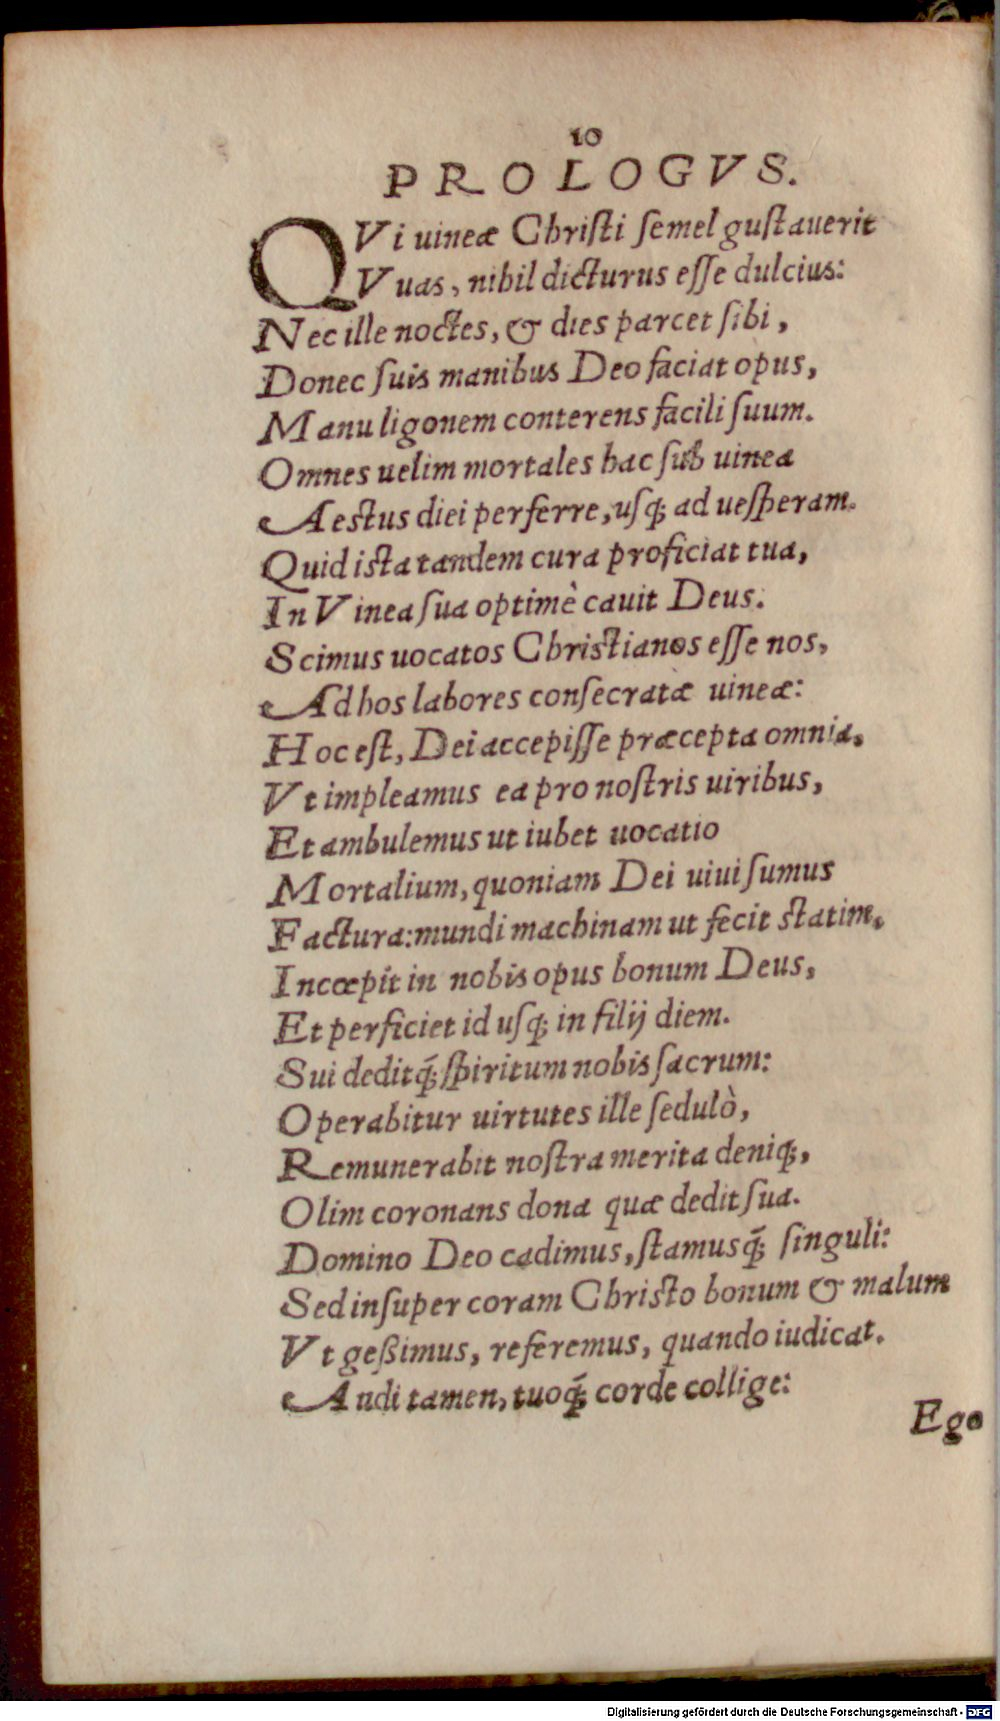 10
PROLOGVS.
QVi uineæ Christi semel gustauerit
Vuas, nihil dicturus esse dulcius:
Nec ille noctes, & dies parcet sibi,
Donec suis manibus Deo faciat opus,
Manu ligonem conterens facili suum.
Omnes uelim mortales hac sub uinea
Aestus diei perferre, usq; ad uesperam.
Quid ista tandem cura proficiat tua,
In Vinea sua optimè cauit Deus.
Scimus uocatos Christianos esse nos,
Ad hos labores consecratæ uineæ:
Hoc est, Dei accepisse præcepta omnia,
Vt impleamus ea pro nostris uiribus,
Et ambulemus ut iubet uocatio
Mortalium, quoniam Dei uiui sumus
Factura: mundi machinam ut fecit statim,
Incœpit in nobis opus bonum Deus,
Et perficiet id usq; in filij diem.
Sui deditq́; spiritum nobis sacrum:
Operabitur uirtutes ille sedulò,
Remunerabit nostra merita deniq;,
Olim coronans dona quæ dedit sua.
Domino Deo cadimus, stamusq́; singuli:
Sed insuper coram Christo bonum & malum
Vt geßimus, referemus, quando iudicat.
Audi tamen, tuoq́; corde collige:
Ego
Digitalisierung gefördert durch die Deutsche Forschungsgemeinschaft - DFG